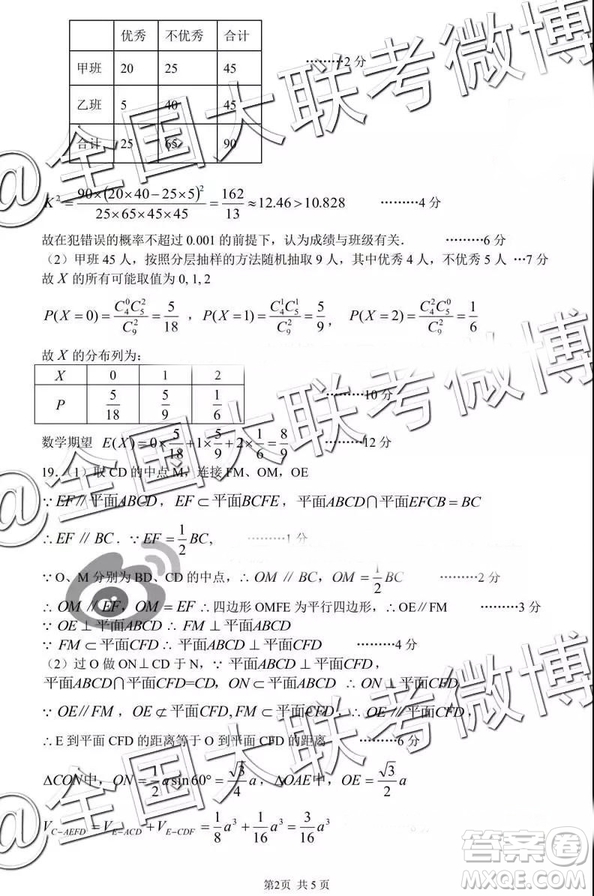 优秀 不优秀 合计
甲班 20 25 45 ………2 分
乙班 5 40 45
合计 25 65 90
K² = 90×(20×40−25×5)² / 25×65×45×45 = 162/13 ≈12.46>10.828 ………4 分
故在犯错误的概率不超过 0.001 的前提下，认为成绩与班级有关. ………6 分
（2）甲班 45 人，按照分层抽样的方法随机抽取 9 人，其中优秀 4 人，不优秀 5 人 …7 分
故 X 的所有可能取值为 0, 1, 2
P(X=0)= C₄⁰C₅²/C₉² = 5/18 ，P(X=1)= C₄¹C₅¹/C₉² = 5/9， P(X=2)= C₄²C₅⁰/C₉² = 1/6
故 X 的分布列为:
X 0 1 2
P 5/18 5/9 1/6 ………10 分
数学期望 E(X)=0×5/18+1×5/9+2×1/6=8/9 ………12 分
19.（1）取 CD 的中点 M，连接 FM、OM，OE
∵EF∥平面ABCD，EF⊂平面BCFE，平面ABCD∩平面EFCB=BC
∴EF∥BC．∵EF=1/2 BC, ………1 分
∵O、M 分别为 BD、CD 的中点，∴OM∥BC，OM=1/2 BC ………2 分
∴OM∥EF，OM=EF ∴四边形 OMFE 为平行四边形，∴OE∥FM ………3 分
∵OE⊥平面ABCD ∴FM⊥平面ABCD
∵FM⊂平面CFD ∴平面ABCD⊥平面CFD ………4 分
（2）过 O 做 ON⊥CD 于 N，∵平面ABCD⊥平面CFD，
平面ABCD∩平面CFD=CD，ON⊂平面ABCD ∴ON⊥平面CFD
∵OE∥FM，OE⊄平面CFD，FM⊂平面CFD，∴OE∥平面CFD
∴E 到平面 CFD 的距离等于 O 到平面 CFD 的距离 ………6 分
ΔCON中，ON=1/2 a sin60°=√3/4 a，ΔOAE中，OE=√3/2 a
∴V_{C-AEFD}=V_{E-ACD}+V_{E-CDF}=1/8 a³+1/16 a³=3/16 a³
第2页 共 5 页
@全国大联考微博
@全国大联考微博
@全国大联考微博
答案圈
MXQE.COM